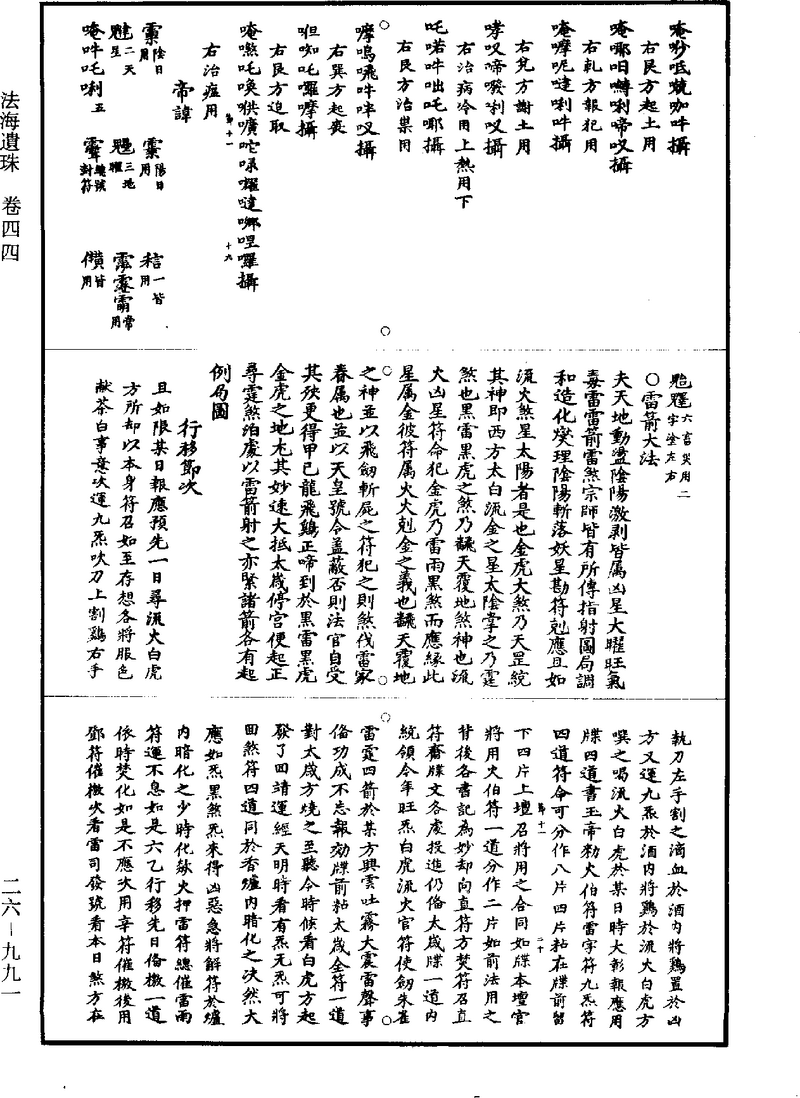 唵吵呧燒咖吽攝
右艮方起土用
唵㖿呬囀唎啼㕛攝
右乹方報犯用
唵嚤呢噠唎吽攝
右兊方謝土用
哮㕛啼㗶唎㕛攝
右治病冷用上熱用下
吒喏吽咄吒㖿攝
右艮方治祟用
嚤嗚飛吽哶㕛攝
右巽方起喪
呾㘉吒囉嚤攝
右艮方追取
右治瘟用
帝諱
陰日用
陽日用
一皆用
二天星
三地耀
常用
唵吽吒唎五
雷號封符
儹皆用
六言災用二字塗左右
○雷箭大法
夫天地動盪陰陽激剥皆属凶星大曜旺氣
毒雷雷箭雷煞宗師皆有所傳指射圖局調
和造化燮理陰陽斬落妖星勘符剋應且如
流火煞星太陽者是也金虎大煞乃天罡統
其神即西方太白流金之星太陰掌之乃霆
煞也黑雷黑虎之煞乃飜天覆地煞神也流
火凶星符命犯金虎乃雷雨黑煞而應緣此
星属金彼符属火火剋金之義也飜天覆地
之神並以飛劒斬屍之符犯之則煞伐雷家
眷属也並以天皇號令盖蔽否則法官自受
其殃更得甲巳龍飛鷄正啼到於黑雷黑虎
金虎之地尤其妙速大抵太歲停宫便起正
尋霆煞泊處以雷箭射之亦緊諸箭各有起
例局圖
行移節次
且如限某日報應預先一日尋流火白虎
方所却以本身符召如至存想各將服色
献茶白事意次運九炁吹刀上割鷄右手
執刀左手割之滴血於酒内將鷄置於凶
方又運九炁於酒内將鷄於流火白虎方
噀之喝流火白虎於某日時大彰報應用
牒四道書玉帝勑火伯符雷字符九炁符
四道符命可分作八片四片粘在牒前留
下四片上壇召將用之合同如牒本壇官
將用火伯符一道分作二片如前法用之
背後各書記為妙却向直符方焚符召直
符賫牒文各處投進仍俻太歲牒一道内
統領今年旺炁白虎流火官符使劒朱雀
雷霆四箭於某方興雲吐霧大震雷聲事
俻功成不忘報効牒前粘太歲全符一道
對太歲方燒之至聽令時候看白虎方起
發了回請運經天明時看有炁无炁可將
回煞符四道同於香爐内暗化之决然大
應如炁黑煞炁來得凶惡急將解符於爐
内暗化之少時化歘火押雷符總催雷雨
符運不息如是六乙行移先日俻檄一道
依時焚化如是不應次用辛符催檄後用
鄧符催檄次看雷司發號看本日煞方在
第十一
十九
第十二
二十
法海遺珠 卷四四
二六－九九一